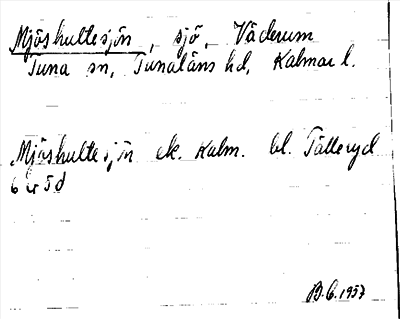 Mjöshultesjön, sjö, Väderum
Tuna sn, Tunaläns hd, Kalmar l.
Mjöshultesjön ek. Kalm. bl. Tälleryd
6 5 d
B.G. 1957